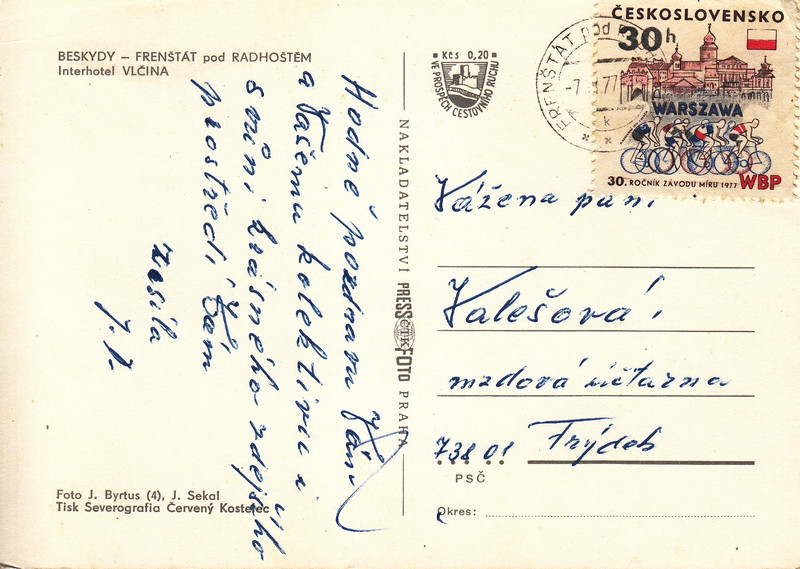 BESKYDY – FRENŠTÁT pod RADHOŠTĚM
Interhotel VLČINA
Hodně pozdravů Vám
a Vašemu kolektivu i
svěží krásného zdejšího
prostředí Vám
zasílá
J. J.
Foto J. Byrtus (4), J. Sekal
Tisk Severografia Červený Kostelec
NAKLADATELSTVÍ PRESSFOTO PRAHA
ČTK
Kčs 0,20
VE PROSPĚCH CESTOVNÍHO RUCHU
FRENŠTÁT pod
-7. 77
k
ČESKOSLOVENSKO
30h
WARSZAWA
30. ROČNÍK ZÁVODU MÍRU 1977 WBP
Vážená paní
Valešová
mzdová účtárna
738 01 Frýdek
PSČ
Okres: